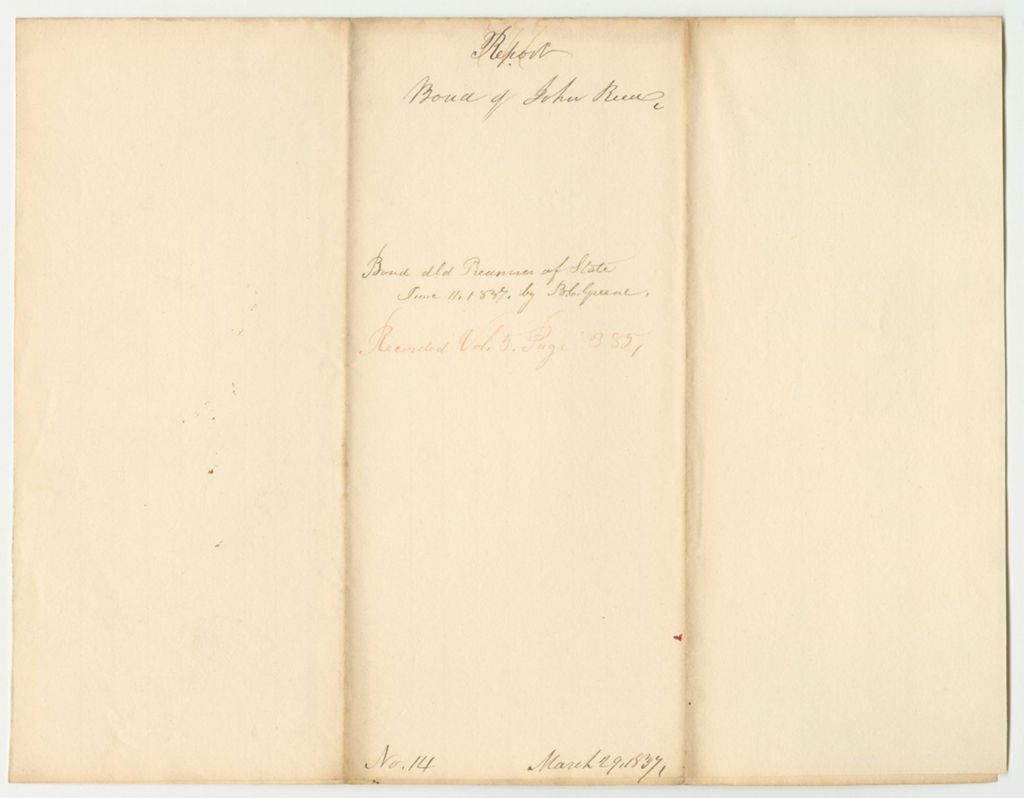 Report
Bond of John
Bond dld Treasurer of State
June 11. 1837. by B.C. Greene.
Recorded Vol. 5. Page 385,
No. 14 March 29, 1837,